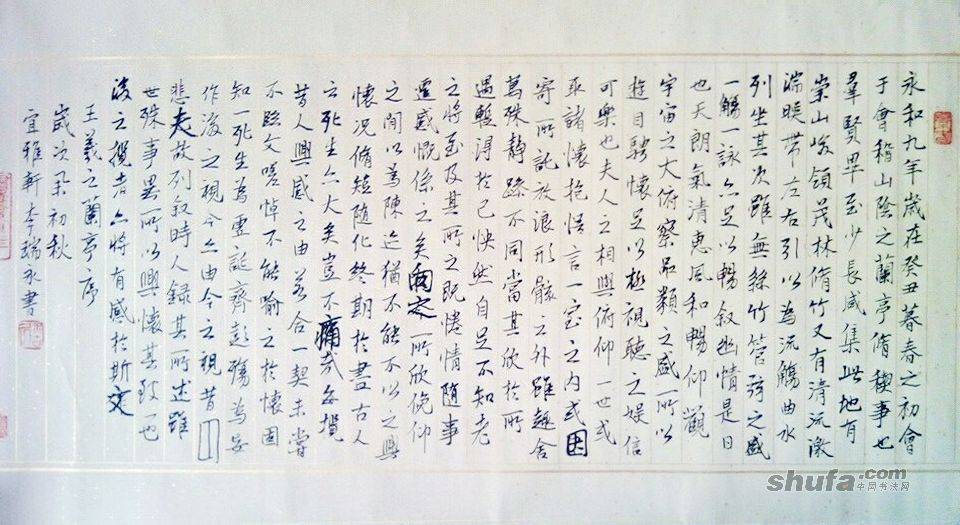 永和九年歲在癸丑暮春之初會
于會稽山陰之蘭亭脩稧事也
羣賢畢至少長咸集此地有
崇山峻領茂林脩竹又有清流激
湍暎帶左右引以為流觴曲水
列坐其次雖無絲竹管弦之盛
一觴一詠亦足以暢叙幽情是日
也天朗氣清惠風和暢仰觀
宇宙之大俯察品類之盛所以
遊目騁懷足以極視聽之娛信
可樂也夫人之相與俯仰一世或
取諸懷抱悟言一室之內或因
寄所託放浪形骸之外雖趣舍
萬殊靜躁不同當其欣於所
遇暫得於己怏然自足不知老
之將至及其所之既惓情隨事
遷感慨係之矣向之所欣俛仰
之間以為陳迹猶不能不以之興
懷況脩短隨化終期於盡古人
云死生亦大矣豈不痛哉每攬
昔人興感之由若合一契未嘗
不臨文嗟悼不能喻之於懷固
知一死生為虛誕齊彭殤為妄
作後之視今亦由今之視昔
悲夫故列叙時人錄其所述雖
世殊事異所以興懷其致一也
後之攬者亦將有感於斯文
王羲之蘭亭序
歲次 初秋
宜雅軒李瑞永書
shufa.com
中国书法网